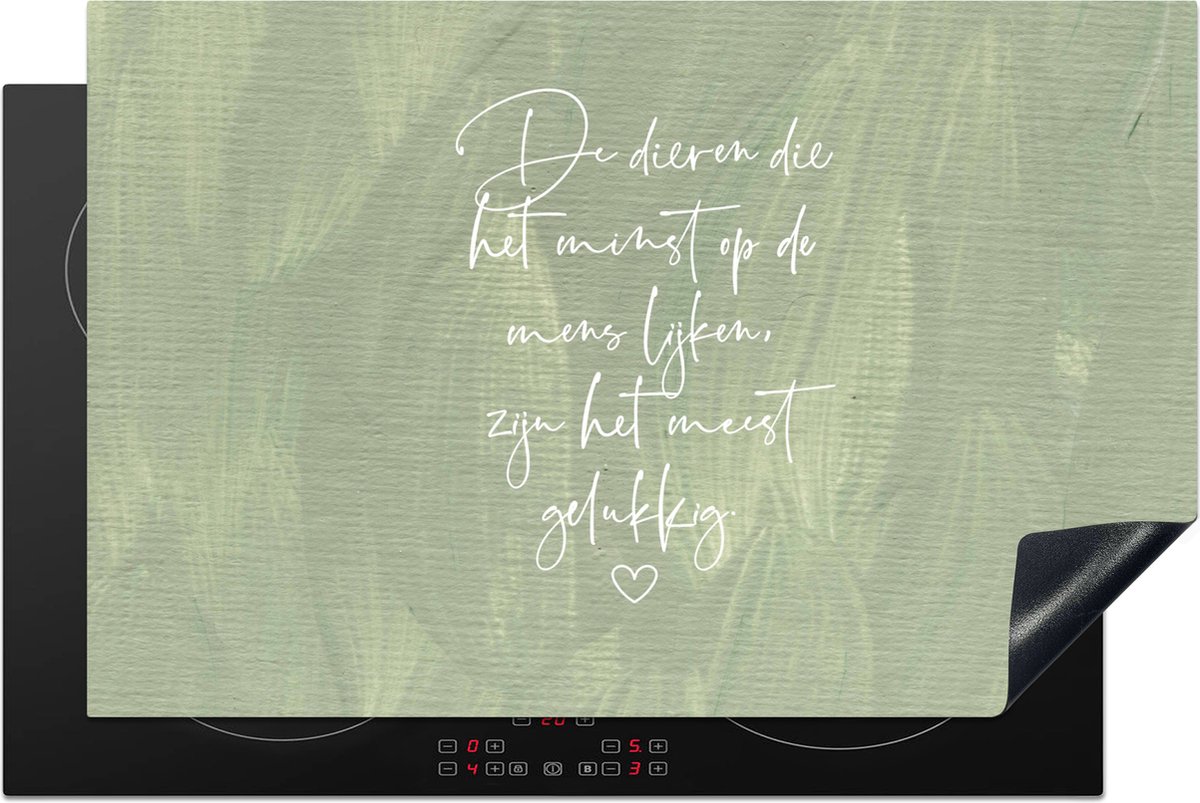 De dieren die
het minst op de
mens lijken,
zijn het meest
gelukkig.
20
0 5.
4 B 3